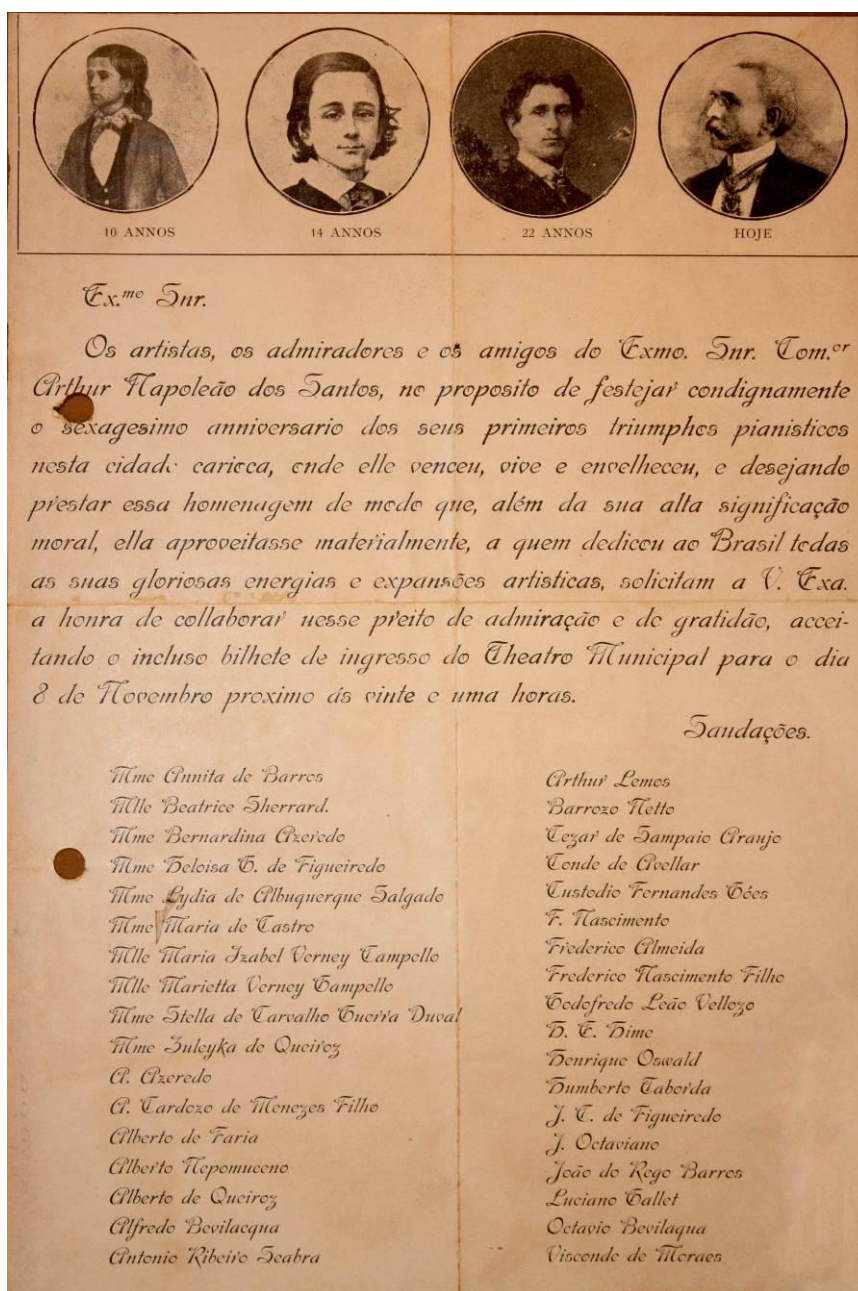 10 ANNOS
14 ANNOS
22 ANNOS
HOJE
Ex.mo Snr.
Os artistas, os admiradores e os amigos do Exmo. Snr. Com.or
Arthur Napoleão dos Santos, no proposito de festejar condignamente
o sexagesimo anniversario dos seus primeiros triumphos pianisticos
nesta cidade carioca, onde elle venceu, vive e envelheceu, e desejando
prestar essa homenagem de modo que, além da sua alta significação
moral, ella aproveitasse materialmente, a quem dedicou ao Brasil todas
as suas gloriosas energias e expansões artisticas, solicitam a V. Exa.
a honra de collaborar nesse preito de admiração e de gratidão, accei-
tando o incluso bilhete de ingresso do Theatro Municipal para o dia
8 de Novembro proximo ás vinte e uma horas.
Saudações.
Mme Annita de Barros
Mlle Beatrice Sherrard.
Mme Bernardina Azeredo
Mme Heloisa G. de Figueiredo
Mme Lydia de Albuquerque Salgado
Mme Maria de Castro
Mlle Maria Izabel Verney Campello
Mlle Marietta Verney Campello
Mme Stella de Carvalho Guerra Duval
Mme Zuleyka de Queiroz
A. Azeredo
A. Cardozo de Menezes Filho
Alberto de Faria
Alberto Nepomuceno
Alberto de Queiroz
Alfredo Bevilacqua
Antonio Ribeiro Seabra
Arthur Lemos
Barrozo Netto
Cezar de Sampaio Araujo
Conde de Avellar
Custodio Fernandes Góes
F. Nascimento
Frederico Almeida
Frederico Nascimento Filho
Godofredo Leão Vellozo
H. E. Hime
Henrique Oswald
Humberto Taborda
J. C. de Figueiredo
J. Octaviano
João do Rego Barros
Luciano Gallet
Octavio Bevilaqua
Visconde de Moraes